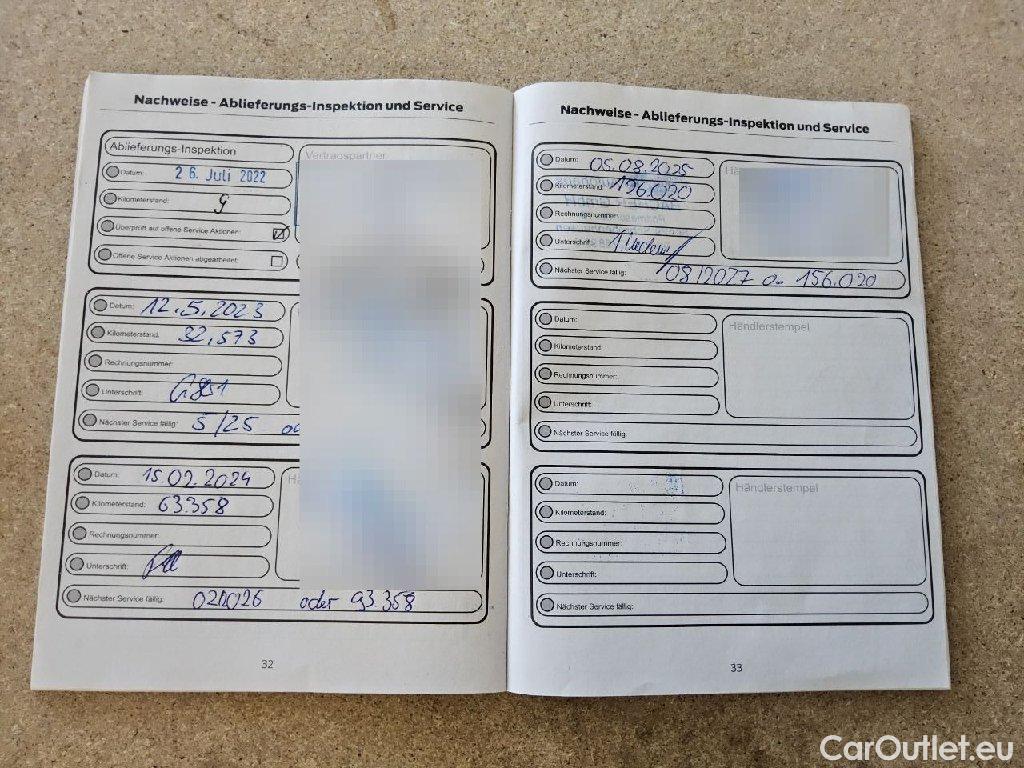 Nachweise - Ablieferungs-Inspektion und Service
Ablieferungs-Inspektion
Vertragspartner
Datum: 26. Juli 2022
Kilometerstand: 9
Überprüft auf offene Service Aktionen:
Offene Service Aktionen abgearbeitet:
Datum: 12.5.2023
Kilometerstand: 32.573
Rechnungsnummer:
Unterschrift:
Nächster Service fällig: 5/25
Datum: 15.02.2024
Kilometerstand: 63.358
Rechnungsnummer:
Unterschrift:
Nächster Service fällig: 02/2026 oder 93.358
32
Nachweise - Ablieferungs-Inspektion und Service
Datum: 05.08.2025
Kilometerstand: 126.020
Rechnungsnummer:
Unterschrift:
Nächster Service fällig: 08/2027 o. 156.020
Datum:
Händlerstempel
Kilometerstand:
Rechnungsnummer:
Unterschrift:
Nächster Service fällig:
Datum:
Händlerstempel
Kilometerstand:
Rechnungsnummer:
Unterschrift:
Nächster Service fällig:
33
CarOutlet.eu